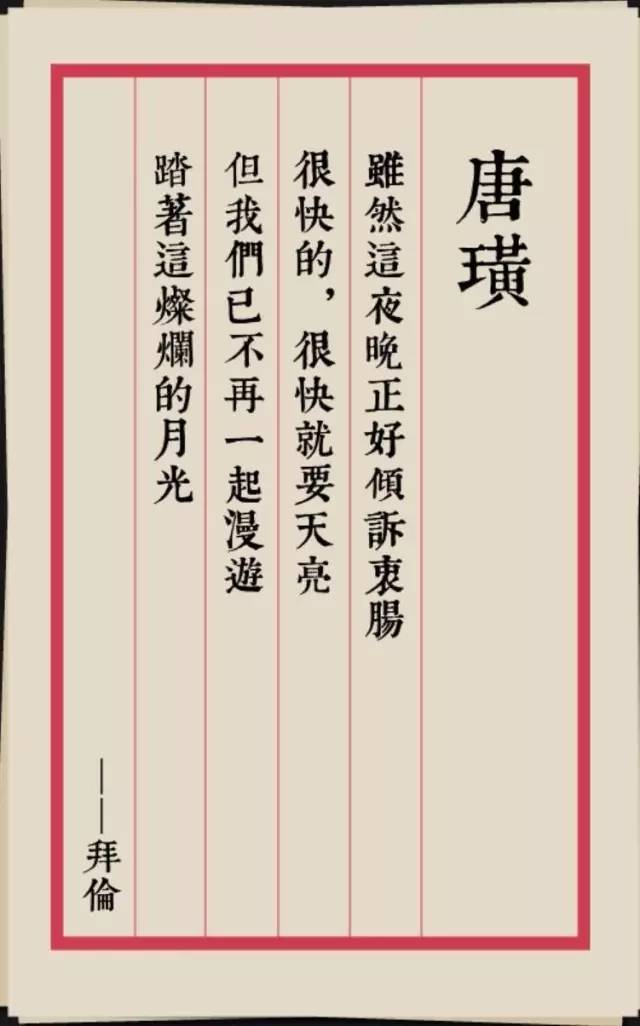 唐璜
雖然這夜晚正好傾訴衷腸
很快的，很快就要天亮
但我們已不再一起漫遊
踏著這燦爛的月光
——拜倫